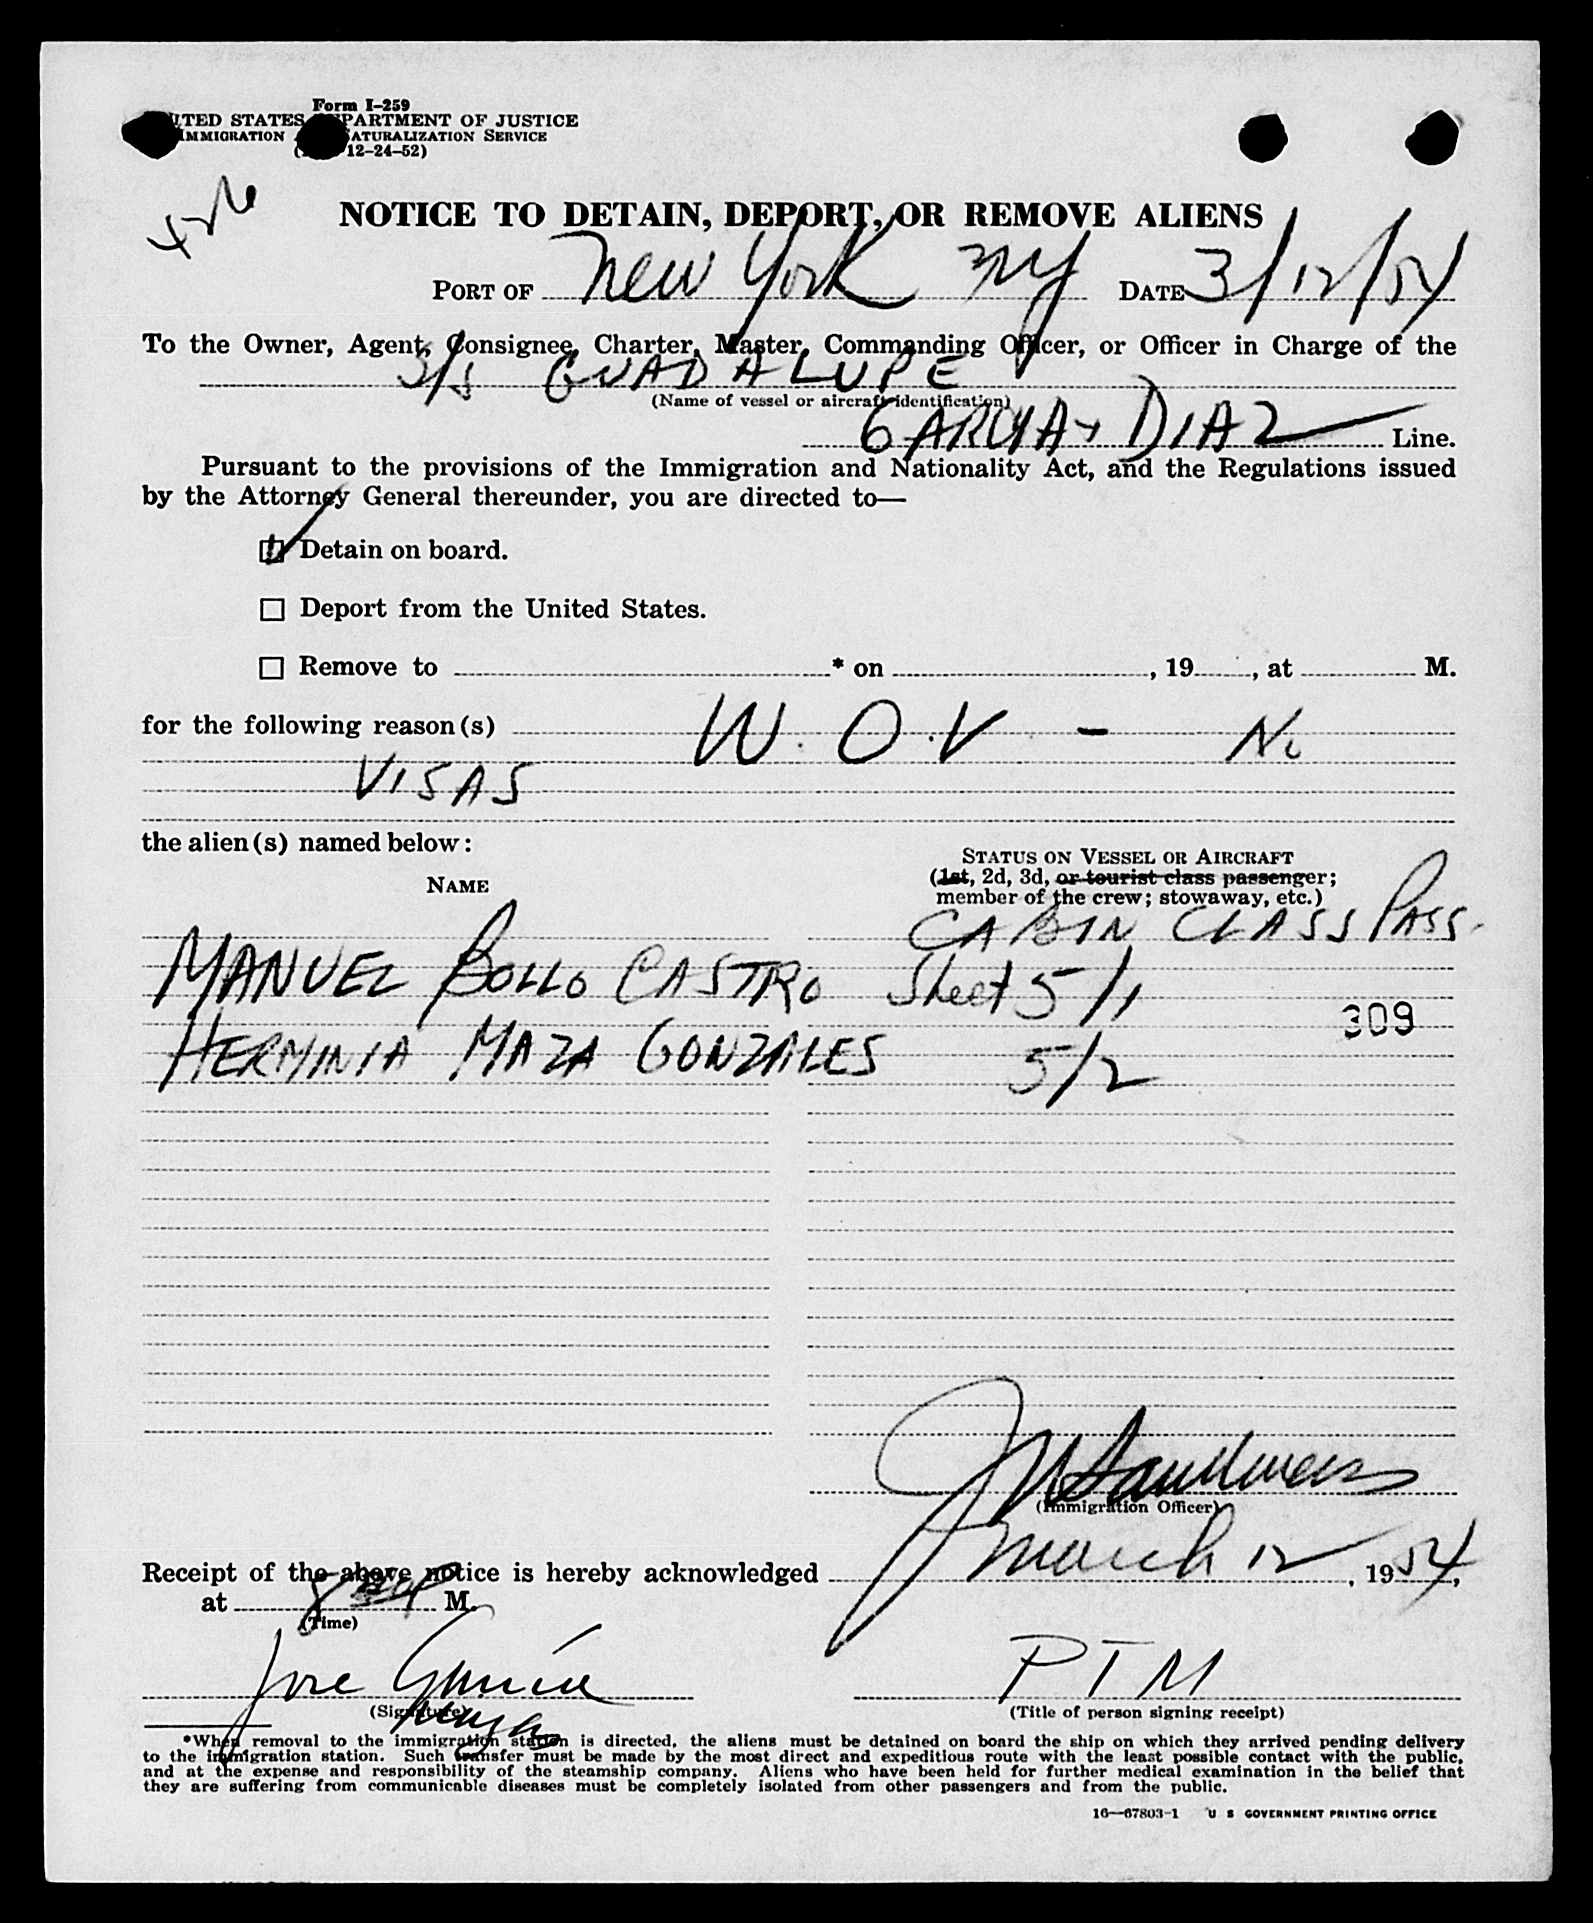 Form I-259
UNITED STATES DEPARTMENT OF JUSTICE
IMMIGRATION NATURALIZATION SERVICE
12-24-52)
NOTICE TO DETAIN, DEPORT, OR REMOVE ALIENS
PORT OF New York NY DATE 3/12/54
To the Owner, Agent, Consignee, Charter, Master, Commanding Officer, or Officer in Charge of the
S/S GUADALUPE
(Name of vessel or aircraft identification)
GARCIA Y DIAZ Line.
Pursuant to the provisions of the Immigration and Nationality Act, and the Regulations issued
by the Attorney General thereunder, you are directed to—
Detain on board.
Deport from the United States.
Remove to * on , 19 , at M.
for the following reason(s) W.O.V - No
VISAS
the alien(s) named below:
STATUS ON VESSEL OR AIRCRAFT
NAME
(1st, 2d, 3d, or tourist class passenger;
member of the crew; stowaway, etc.)
CABIN CLASS PASS.
MANUEL BOLLO CASTRO Sheet 5/1
309
HERMINIA MAZA GONZALES 5/2
(Immigration Officer)
Receipt of the above notice is hereby acknowledged March 12, 1954,
at 8 M.
(Time)
Jose Garcia PTM
(Signature) (Title of person signing receipt)
*When removal to the immigration station is directed, the aliens must be detained on board the ship on which they arrived pending delivery
to the immigration station. Such transfer must be made by the most direct and expeditious route with the least possible contact with the public,
and at the expense and responsibility of the steamship company. Aliens who have been held for further medical examination in the belief that
they are suffering from communicable diseases must be completely isolated from other passengers and from the public.
16—67803-1 U S GOVERNMENT PRINTING OFFICE